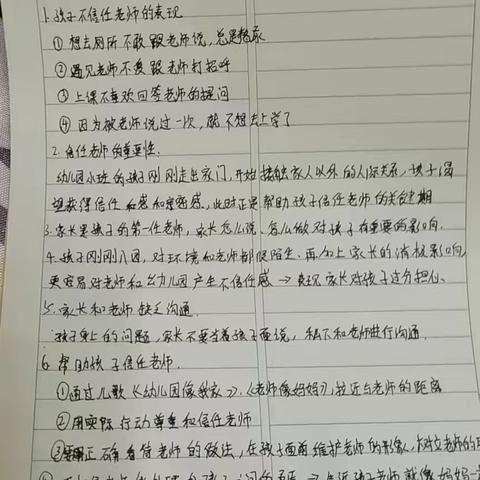 1. 孩子不信任老师的表现
① 想去厕所不敢跟老师说，总是憋尿
② 遇见老师不爱跟老师打招呼
③ 上课不喜欢回答老师的提问
④ 因为被老师说过一次，就不想去上学了
2. 信任老师的重要性.
幼儿园小班的孩子刚刚走出家门，开始接触家人以外的人际关系，孩子渴
望获得信任和感和安全感，此时正是帮助孩子信任老师的关键期
3. 家长是孩子的第一任老师，家长怎么说、怎么做对孩子有重要的影响.
4. 孩子刚刚入园，对环境和老师都很陌生、再加上家长的消极影响，
更容易对老师和幼儿园产生不信任感 → 表现 家长对孩子过分担心、
5. 家长和老师缺乏沟通.
孩子身上的问题，家长不要当着孩子面说，私下和老师进行沟通.
6. 帮助孩子信任老师.
①通过儿歌《幼儿园像我家》、《老师像妈妈》，拉近与老师的距离
②用实际行动尊重和信任老师
③ 正确看待老师的做法，在孩子面前维护老师的形象，树立老师的